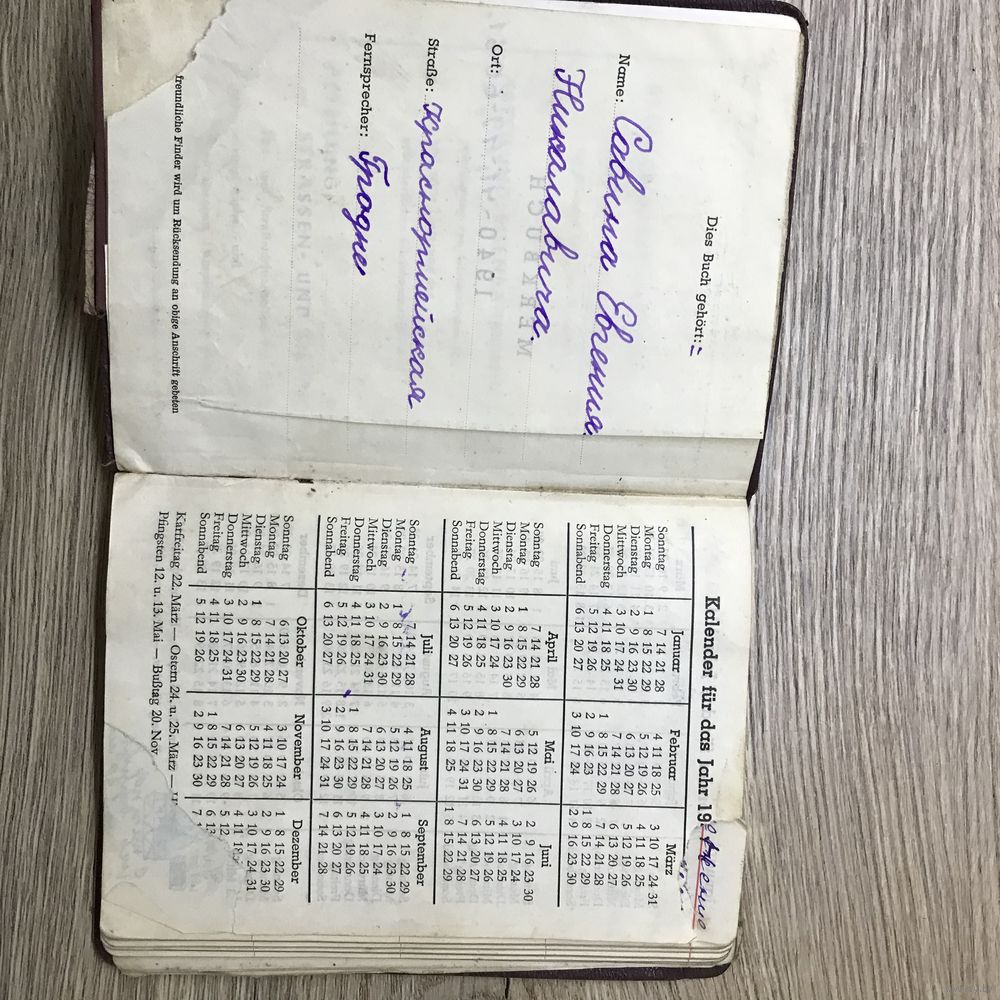 Dies Buch gehört:
Name: Савина Евгения
Никалавича.
Ort:
Straße: Красноармейская
Fernsprecher: Гродне
freundliche Finder wird um Rücksendung an obige Anschrift gebeten
Kalender für das Jahr 19
Januar Februar März
Sonntag 7 14 21 28 4 11 18 25 3 10 17 24 31
Montag 1 8 15 22 29 5 12 19 26 4 11 18 25
Dienstag 2 9 16 23 30 6 13 20 27 5 12 19 26
Mittwoch 3 10 17 24 31 7 14 21 28 6 13 20 27
Donnerstag 4 11 18 25 1 8 15 22 29 7 14 21 28
Freitag 5 12 19 26 2 9 16 23 1 8 15 22 29
Sonnabend 6 13 20 27 3 10 17 24 2 9 16 23 30
April Mai Juni
Sonntag 7 14 21 28 5 12 19 26 2 9 16 23 30
Montag 1 8 15 22 29 6 13 20 27 3 10 17 24
Dienstag 2 9 16 23 30 7 14 21 28 4 11 18 25
Mittwoch 3 10 17 24 1 8 15 22 29 5 12 19 26
Donnerstag 4 11 18 25 2 9 16 23 30 6 13 20 27
Freitag 5 12 19 26 3 10 17 24 31 7 14 21 28
Sonnabend 6 13 20 27 4 11 18 25 1 8 15 22 29
Juli August September
Sonntag 7 14 21 28 4 11 18 25 1 8 15 22 29
Montag 1 8 15 22 29 5 12 19 26 2 9 16 23 30
Dienstag 2 9 16 23 30 6 13 20 27 3 10 17 24
Mittwoch 3 10 17 24 31 7 14 21 28 4 11 18 25
Donnerstag 4 11 18 25 1 8 15 22 29 5 12 19 26
Freitag 5 12 19 26 2 9 16 23 30 6 13 20 27
Sonnabend 6 13 20 27 3 10 17 24 31 7 14 21 28
Oktober November Dezember
Sonntag 6 13 20 27 3 10 17 24 1 8 15 22 29
Montag 7 14 21 28 4 11 18 25 2 9 16 23 30
Dienstag 1 8 15 22 29 5 12 19 26 3 10 17 24 31
Mittwoch 2 9 16 23 30 6 13 20 27 4 11 18
Donnerstag 3 10 17 24 31 7 14 21 28 5 12
Freitag 4 11 18 25 1 8 15 22 29 6 13
Sonnabend 5 12 19 26 2 9 16 23 30 7
Karfreitag 22. März — Ostern 24. u. 25. März —
Pfingsten 12. u. 13. Mai — Bußtag 20. Nov